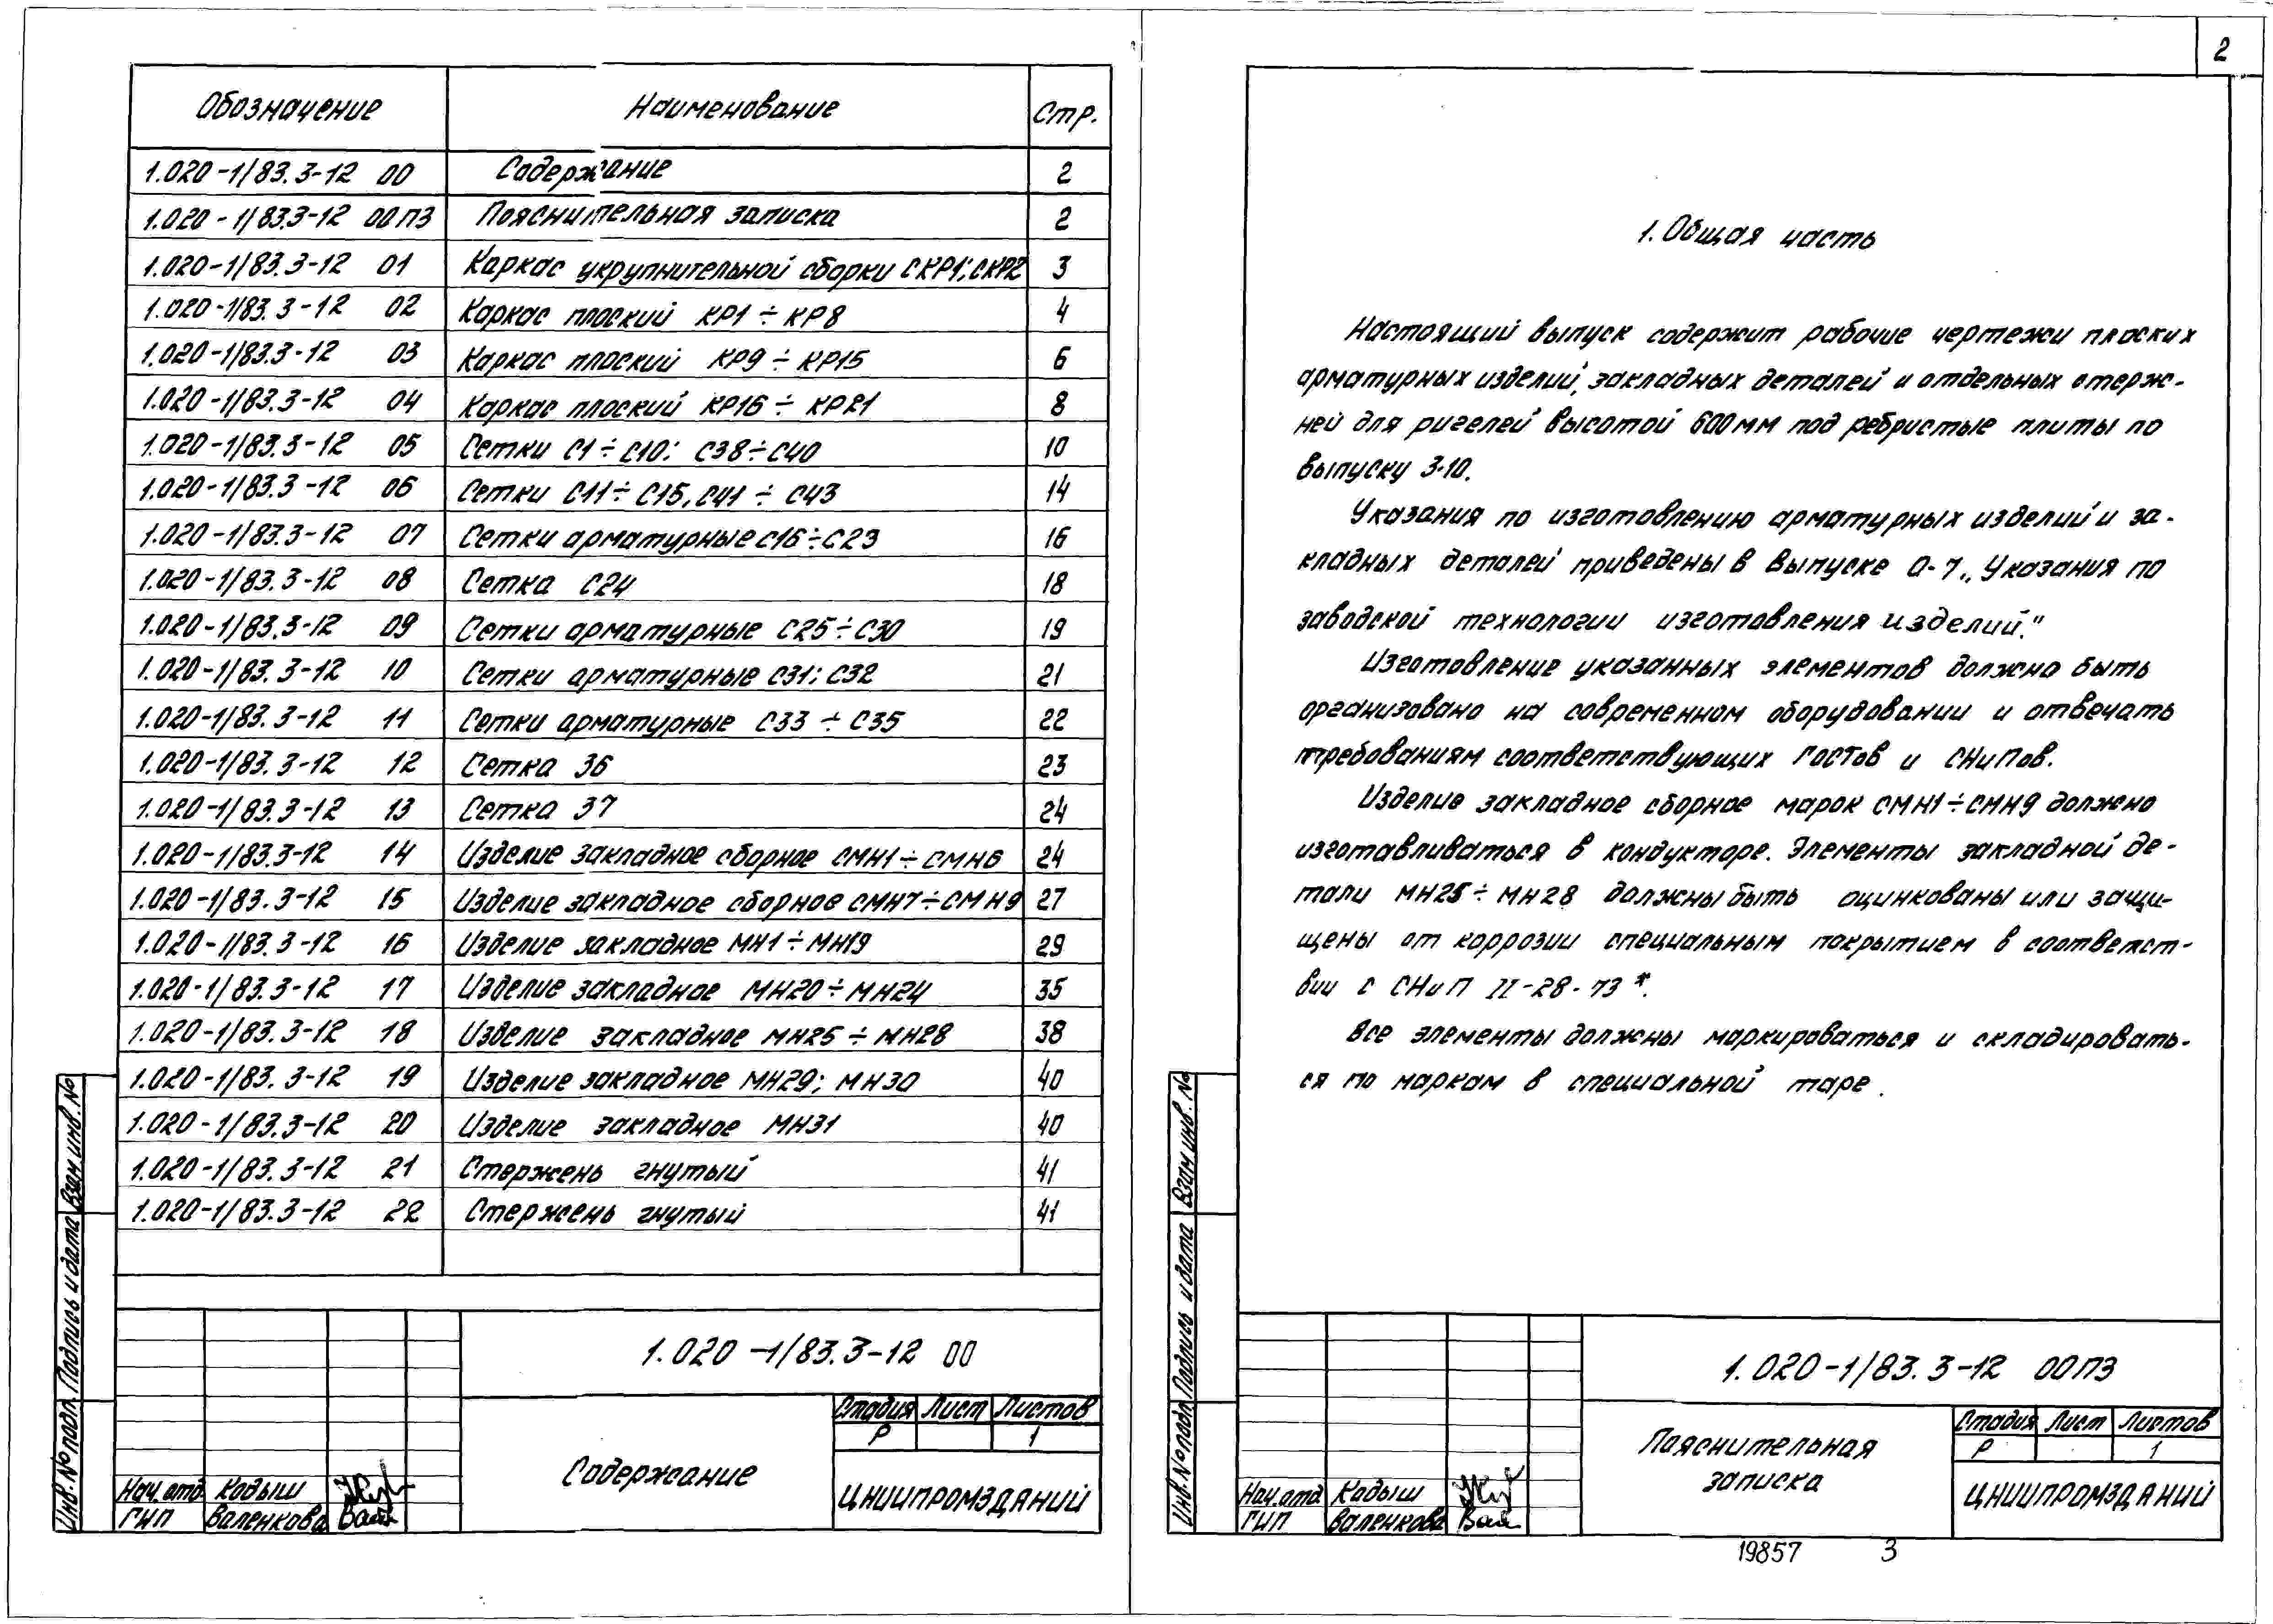 Обозначение Наименование Стр.
1.020-1/83.3-12 00 Содержание 2
1.020-1/83.3-12 00ПЗ Пояснительная записка 2
1.020-1/83.3-12 01 Каркас укрупнительной сборки СКР1; СКР2 3
1.020-1/83.3-12 02 Каркас плоский КР1 ÷ КР8 4
1.020-1/83.3-12 03 Каркас плоский КР9 ÷ КР15 6
1.020-1/83.3-12 04 Каркас плоский КР16 ÷ КР21 8
1.020-1/83.3-12 05 Сетки С1 ÷ С10; С38 ÷ С40 10
1.020-1/83.3-12 06 Сетки С11 ÷ С15, С41 ÷ С43 14
1.020-1/83.3-12 07 Сетки арматурные С16 ÷ С23 16
1.020-1/83.3-12 08 Сетка С24 18
1.020-1/83.3-12 09 Сетки арматурные С25 ÷ С30 19
1.020-1/83.3-12 10 Сетки арматурные С31; С32 21
1.020-1/83.3-12 11 Сетки арматурные С33 ÷ С35 22
1.020-1/83.3-12 12 Сетка 36 23
1.020-1/83.3-12 13 Сетка 37 24
1.020-1/83.3-12 14 Изделие закладное сборное СМН1 ÷ СМН6 24
1.020-1/83.3-12 15 Изделие закладное сборное СМН7 ÷ СМН9 27
1.020-1/83.3-12 16 Изделие закладное МН1 ÷ МН19 29
1.020-1/83.3-12 17 Изделие закладное МН20 ÷ МН24 35
1.020-1/83.3-12 18 Изделие закладное МН25 ÷ МН28 38
1.020-1/83.3-12 19 Изделие закладное МН29; МН30 40
1.020-1/83.3-12 20 Изделие закладное МН31 40
1.020-1/83.3-12 21 Стержень гнутый 41
1.020-1/83.3-12 22 Стержень гнутый 41
Инв. № подл. Подпись и дата Взам. инв. №
1.020-1/83.3-12 00
Содержание
Стадия Лист Листов
Р 1
ЦНИИПРОМЗДАНИЙ
Нач. отд. Кодыш
ГИП Валенкова
2
1. Общая часть
Настоящий выпуск содержит рабочие чертежи плоских
арматурных изделий, закладных деталей и отдельных стерж-
ней для ригелей высотой 600 мм под ребристые плиты по
выпуску 3-10.
Указания по изготовлению арматурных изделий и за-
кладных деталей приведены в выпуске 0-7 „Указания по
заводской технологии изготовления изделий."
Изготовление указанных элементов должно быть
организовано на современном оборудовании и отвечать
требованиям соответствующих ГОСТов и СНиПов.
Изделие закладное сборное марок СМН1 ÷ СМН9 должно
изготавливаться в кондукторе. Элементы закладной де-
тали МН25 ÷ МН28 должны быть оцинкованы или защи-
щены от коррозии специальным покрытием в соответст-
вии с СНиП II-28-73*.
Все элементы должны маркироваться и складировать-
ся по маркам в специальной таре.
Инв. № подл. Подпись и дата Взам. инв. №
1.020-1/83.3-12 00ПЗ
Пояснительная
записка
Стадия Лист Листов
Р 1
ЦНИИПРОМЗДАНИЙ
Нач. отд Кодыш
ГИП Валенкова
19857 3